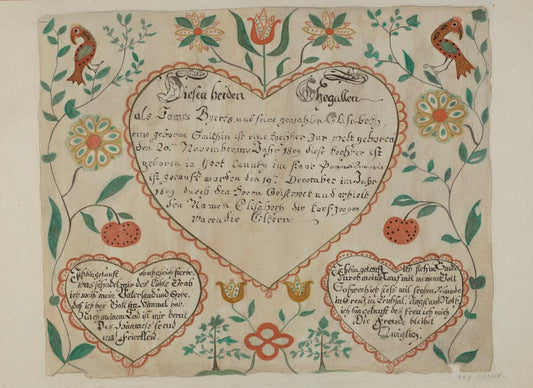 Diesen beiden Ehegatten
als James Byers und seine gemahlin Elisabeth
eine geborne Smithin ist eine tochter zur welt geboren
den 20ten November im Jahr 1809 diese tochter ist
geboren in York County im staat
ist getauft worden den 19ten December im Jahr
1809 durch den Herrn und erhielt
den Namen Elisabeth die taufzeugen
waren die Eltern
Ich bin getauft ob ich gleich sterbe
was schadet mir das kühle Grab
ich weis mein Vaterland und Erbe
das ich bey Gott im Himmel hab
Nach meinem Tod ist mir bereit
Des Himmels freud
und
Ich bin getauft ich steh im Bunde
durch meine tauf mit meinem Gott
So sprech ich stets mit frohem Munde
in Creuz in Trübsal Angst und Noth
ich bin getauft des freu ich mich
Die Freude bleibet
Ewiglich